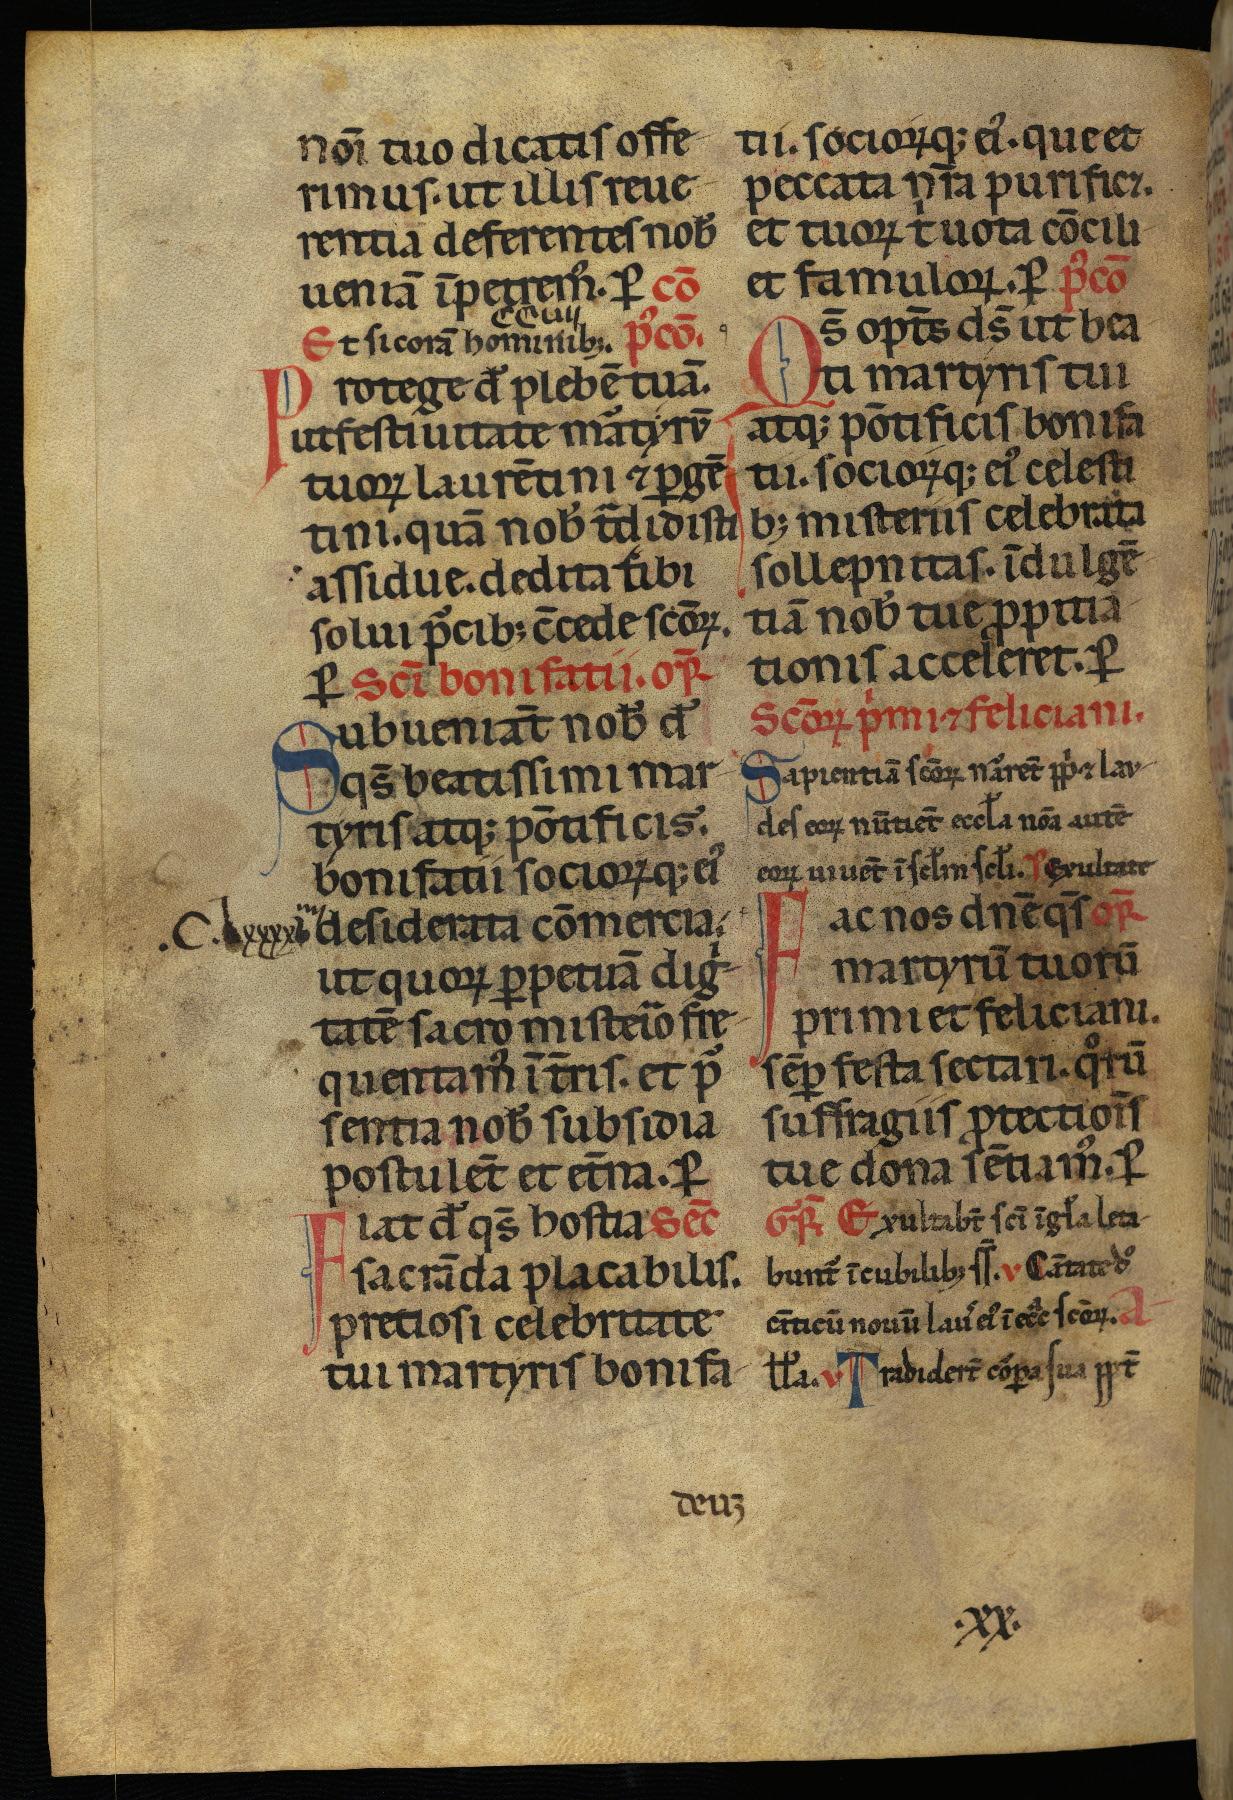 noı̄ tuo dicatis offe
rimus. ut illis reue
rentia deferentes nob̄
ueniā īpetrem᷒. ꝑ cō
CCuij
Et si corā hominibꝫ. p᷒cō.
Protege d̄s plebē tuā.
ut festiuitate m̄atyrū
tuoꝝ laurētini ⁊ ꝑgē
tini. quā nob̄ t̄didisti
assidue. dedita t̄ibi
solui p̄cibꝫ c̄cede scōꝝ.
ꝑ Scī bonifatii. oꝝ̄
Subueniat̄ nob̄ d̄s
qs̄ beatissimi mar
tyris atqꝫ pōtificis.
bonifatii socioꝝqꝫ ei᷒
.C. lxxxxiiij desiderata cōmercia.
ut quoꝝ ꝑpetuā dig
tatē sacro misteıo fre
quentam᷒ ı̄ t̄ris. et p̄
sentia nob̄ subsidia
postulet̄ et et̄na. ꝑ
Fiat d̄s qs̄ hostia Sēc
sacrāda placabilis.
pretiosi celebritate
tui martyris bonifa
tii. socioꝝqꝫ ei᷒. que et
peccata nr̄a purific⁊.
et tuoꝝ t̄ uota cōcili
et famuloꝝ. ꝑ p᷒cō
Qs̄ opt̄s ds̄ ut bea
ti martyris tui
atqꝫ pōtificis bonifa
tii. socioꝝqꝫ ei᷒ celesti
bꝫ misteriis celebrata
sollepnitas. īdulgē
tiā nob̄ tue ꝓpitia
tionis acceleret. ꝑ
Scōꝝ pⁱmi ⁊ feliciani.
Sapientiā scōꝝ narēt ppl̄i ⁊ lau
des eoꝝ nūtiet̄ eccl̄a noı̄a autē
eoꝝ uiuēt ī sclm̄ scl̄i. p̄s Exultate
Fac nos dnē qs̄ oꝝ̄
martyrū tuorū
primi et feliciani.
sēꝑ festa sectari. qᵒrū
suffragiis ꝓtectioı̄s
tue dona sētiam᷒. ꝑ
Gꝝ̄. Exultabt̄ scī īgl̄a leta
bunt᷒ ī cubilibꝫ ss̄. v Cātate dᵒ
cāticū nouū lau᷒ ei᷒ ī ecc̄ scōꝝ. A
ll̄a. v Tradidert̄ coꝑa sua ꝓpt̄
deuꝫ
.xx.